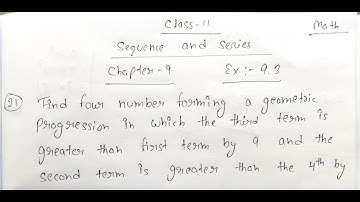 Class-11
Math
Sequence and series
Chapter-9 Ex:- 9.3
21) Find four number forming a geometric
Progression in which the third term is
greater than first term by 9 and the
second term is greater than the 4th by